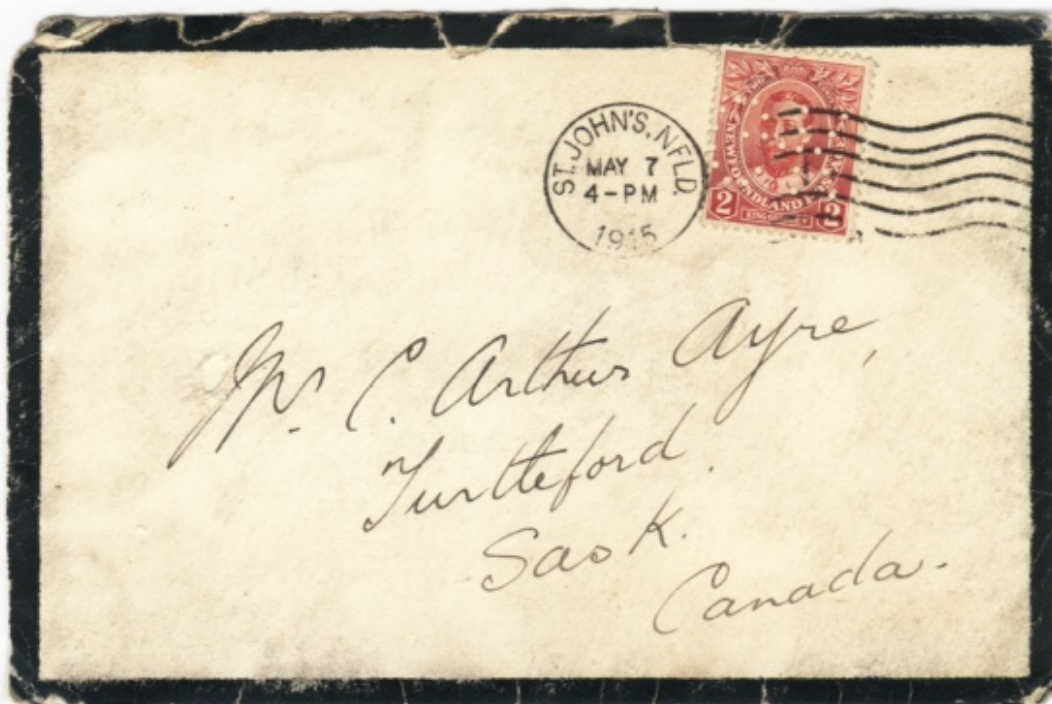 ST. JOHN'S, NFLD.
MAY 7
4-PM
1915
NEWFOUNDLAND
2 2
Mr. C. Arthur Ayre,
Turtleford.
Sask.
Canada.